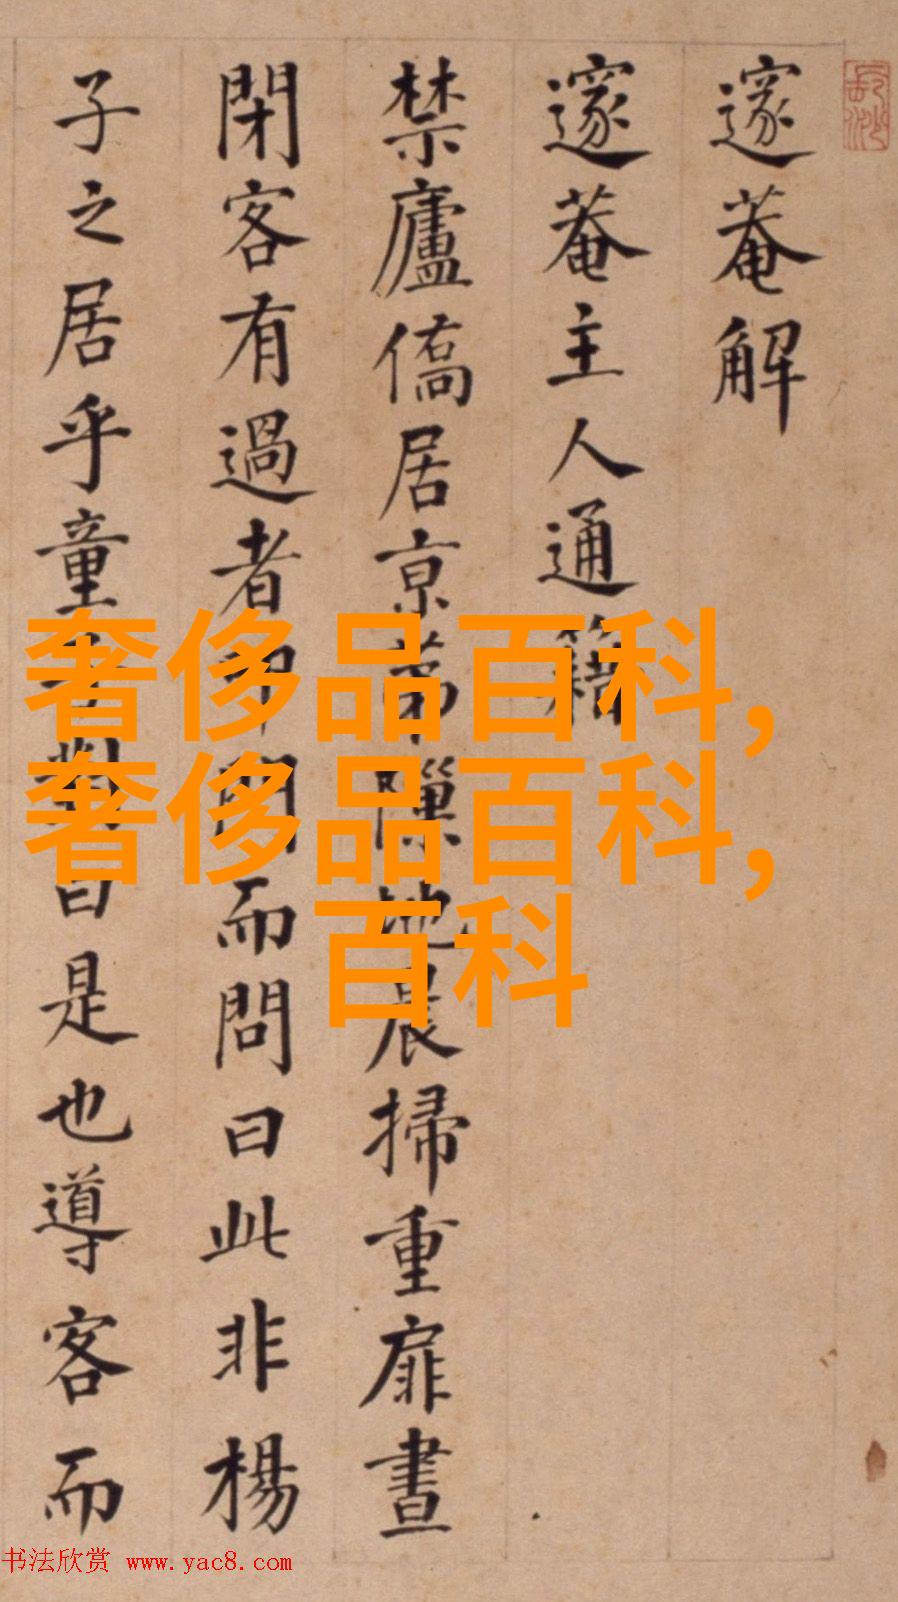 邃菴解
邃菴主人通籍
禁廬僑居京第隟地晨掃重扉晝
閉客有過者叩門而問曰此非楊
子之居乎童子對曰是也導客而
奢侈品百科,
奢侈品百科,
百科
书法欣赏 www.yac8.com